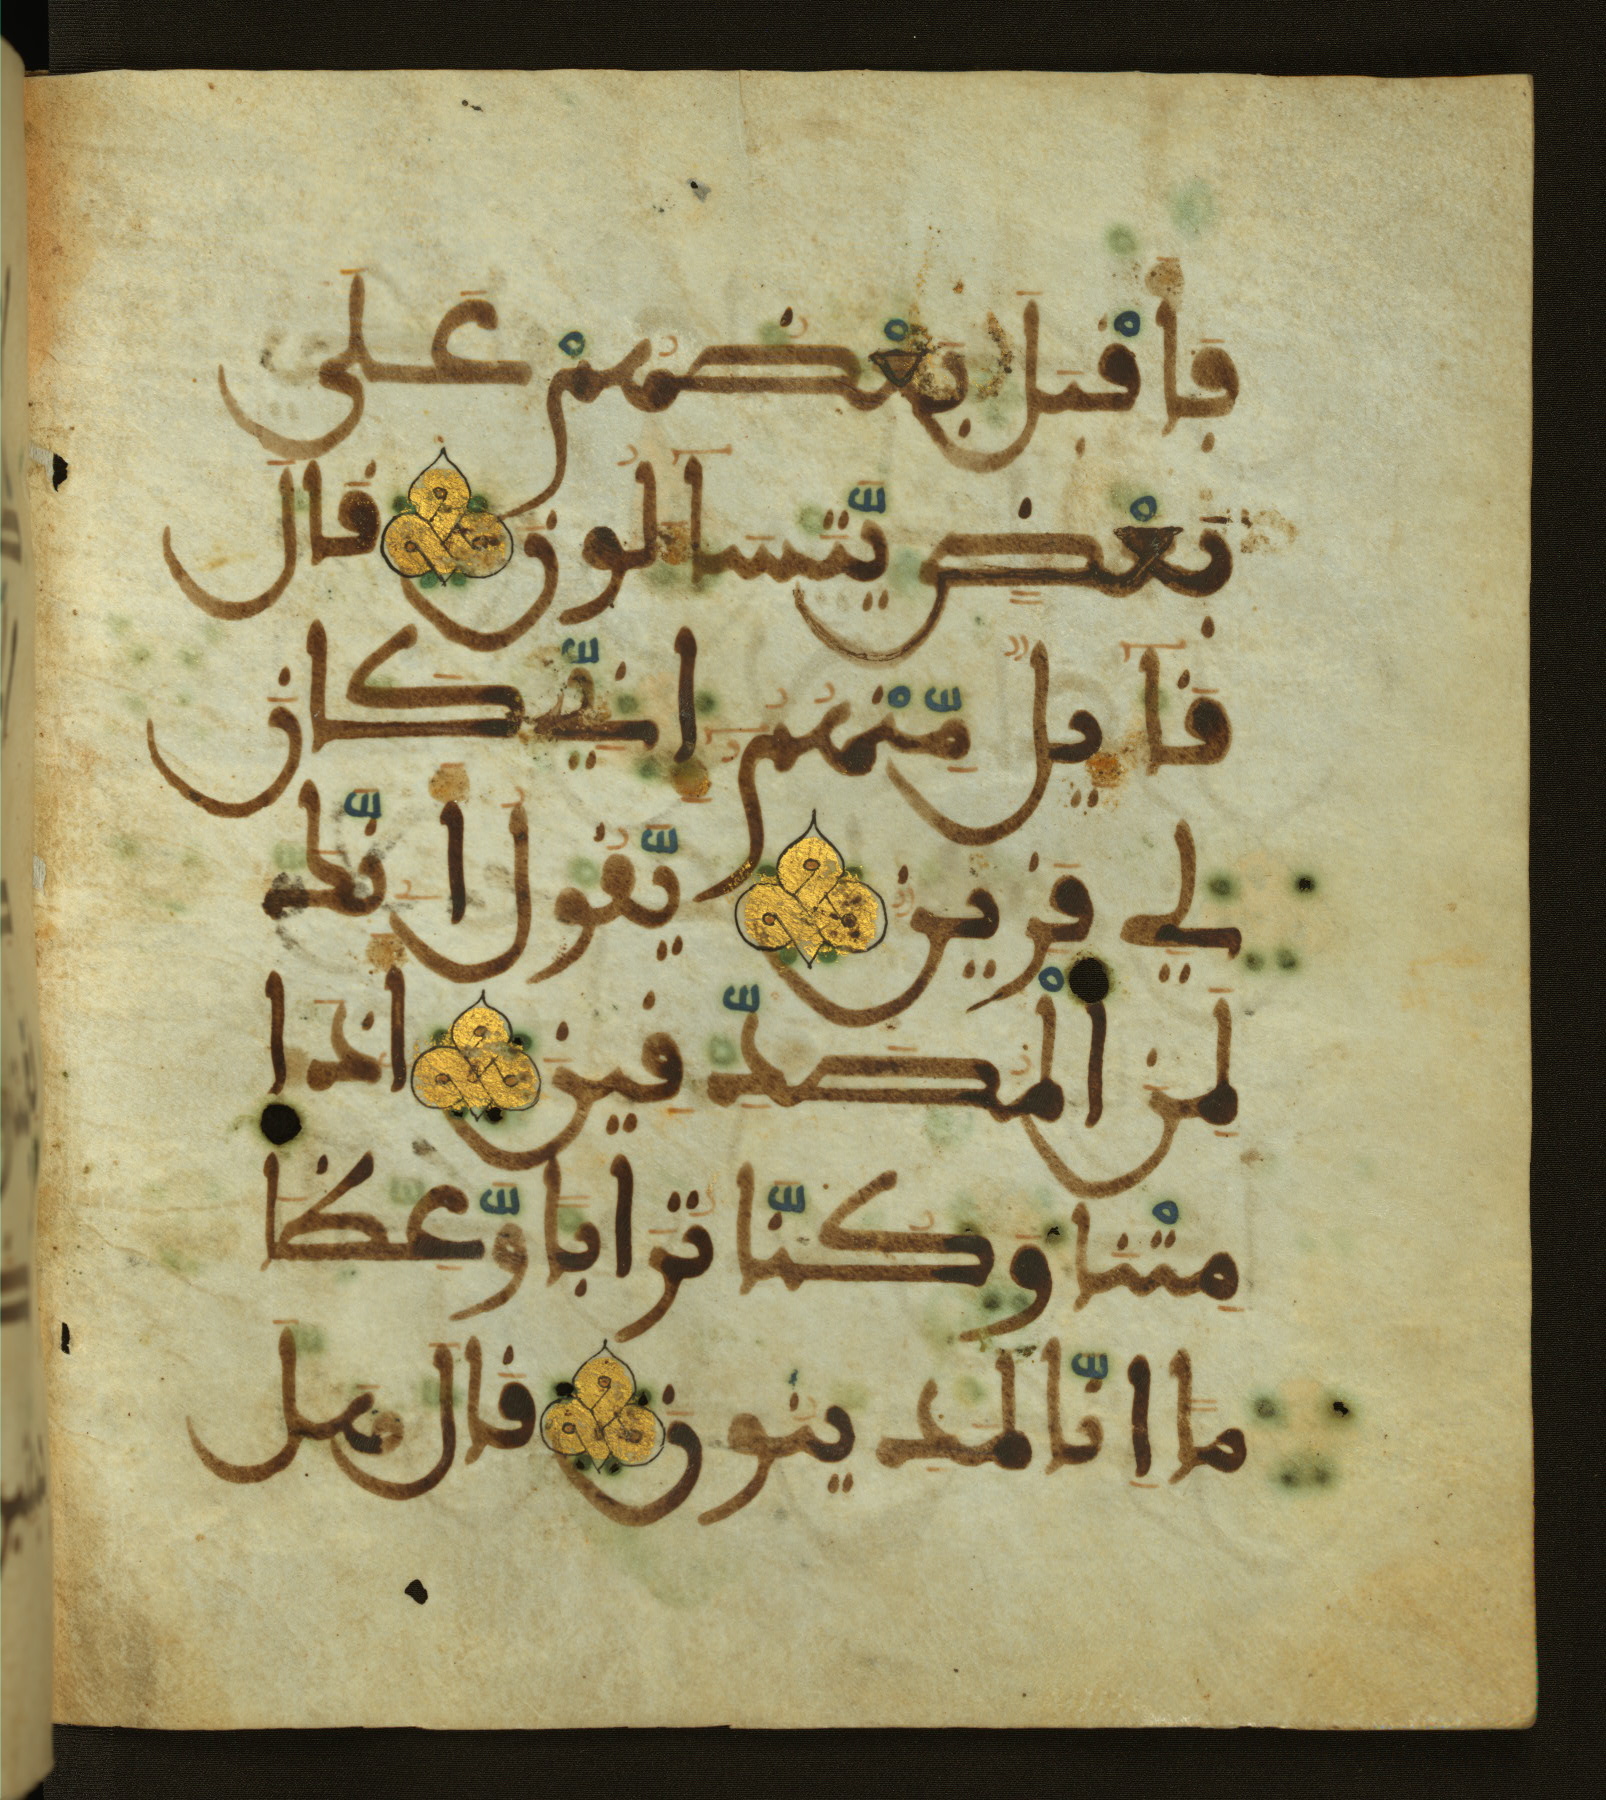 فَأَقْبَلَ بَعْضُهُمْ عَلَى
بَعْضٍ يَّتَسَآءَلُونَ قَالَ
قَآئِلٌ مِّنْهُمُۥٓ إِنِّي كَانَ
لِي قَرِينٌ يَّقُولُ أَٰ۟نَّكَ
لَمِنَ ٱلْمُصَدِّقِينَ أَٰذَا
مِتْنَا وَكُنَّا تُرَابًا وَّعِظَٰمًا
اِنَّا لَمَدِينُونَ قَالَ هَلَ